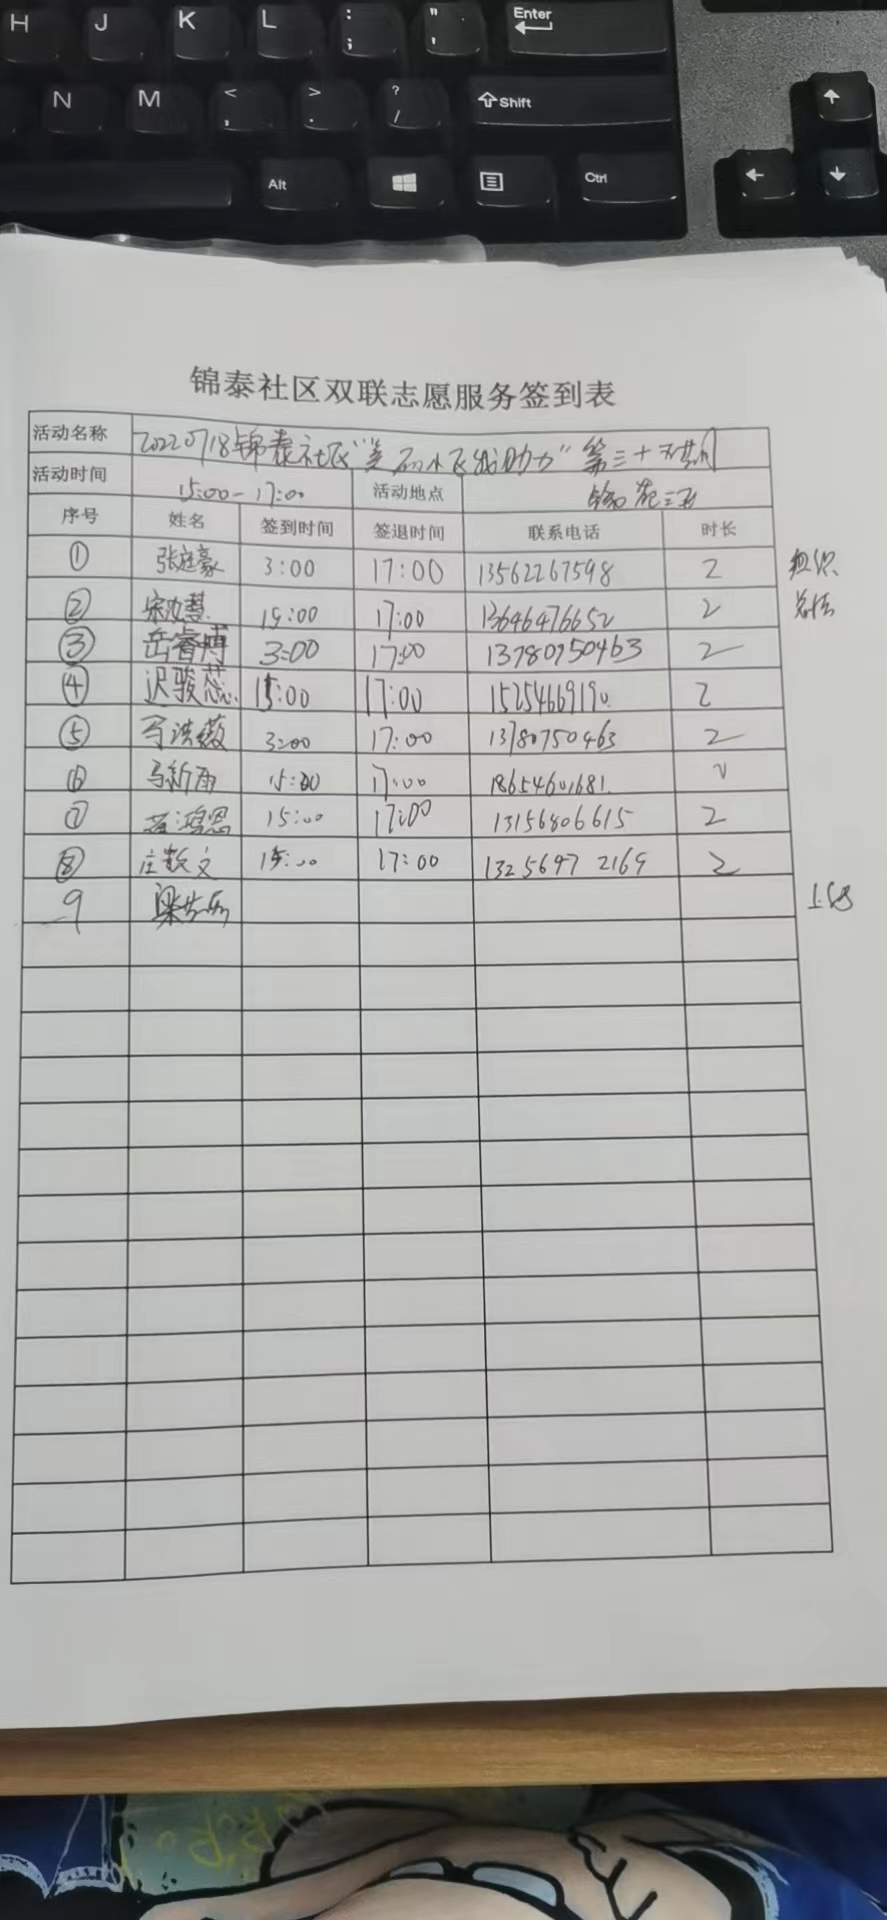 H J K L : ; " ' Enter
N M < , > . ? / Shift
Alt Ctrl
锦泰社区双联志愿服务签到表
活动名称 20220718锦泰社区"美 助力"第三十
活动时间 15:00-17:00 活动地点 锦苑三区
序号 姓名 签到时间 签退时间 联系电话 时长
① 张庭豪 3:00 17:00 13562267598 2 组织
② 15:00 17:00 13646476652 2 总结
③ 岳睿博 3:00 17:00 13780750463 2
④ 迟骏蕊 15:00 17:00 15254669190 2
⑤ 3:00 17:00 13780750463 2
⑥ 马新雨 15:00 17:00 18654601681 2
⑦ 17:00 15:00 13156806615 2
⑧ 庄 文 15:00 17:00 13256972169 2
9 梁 1.58